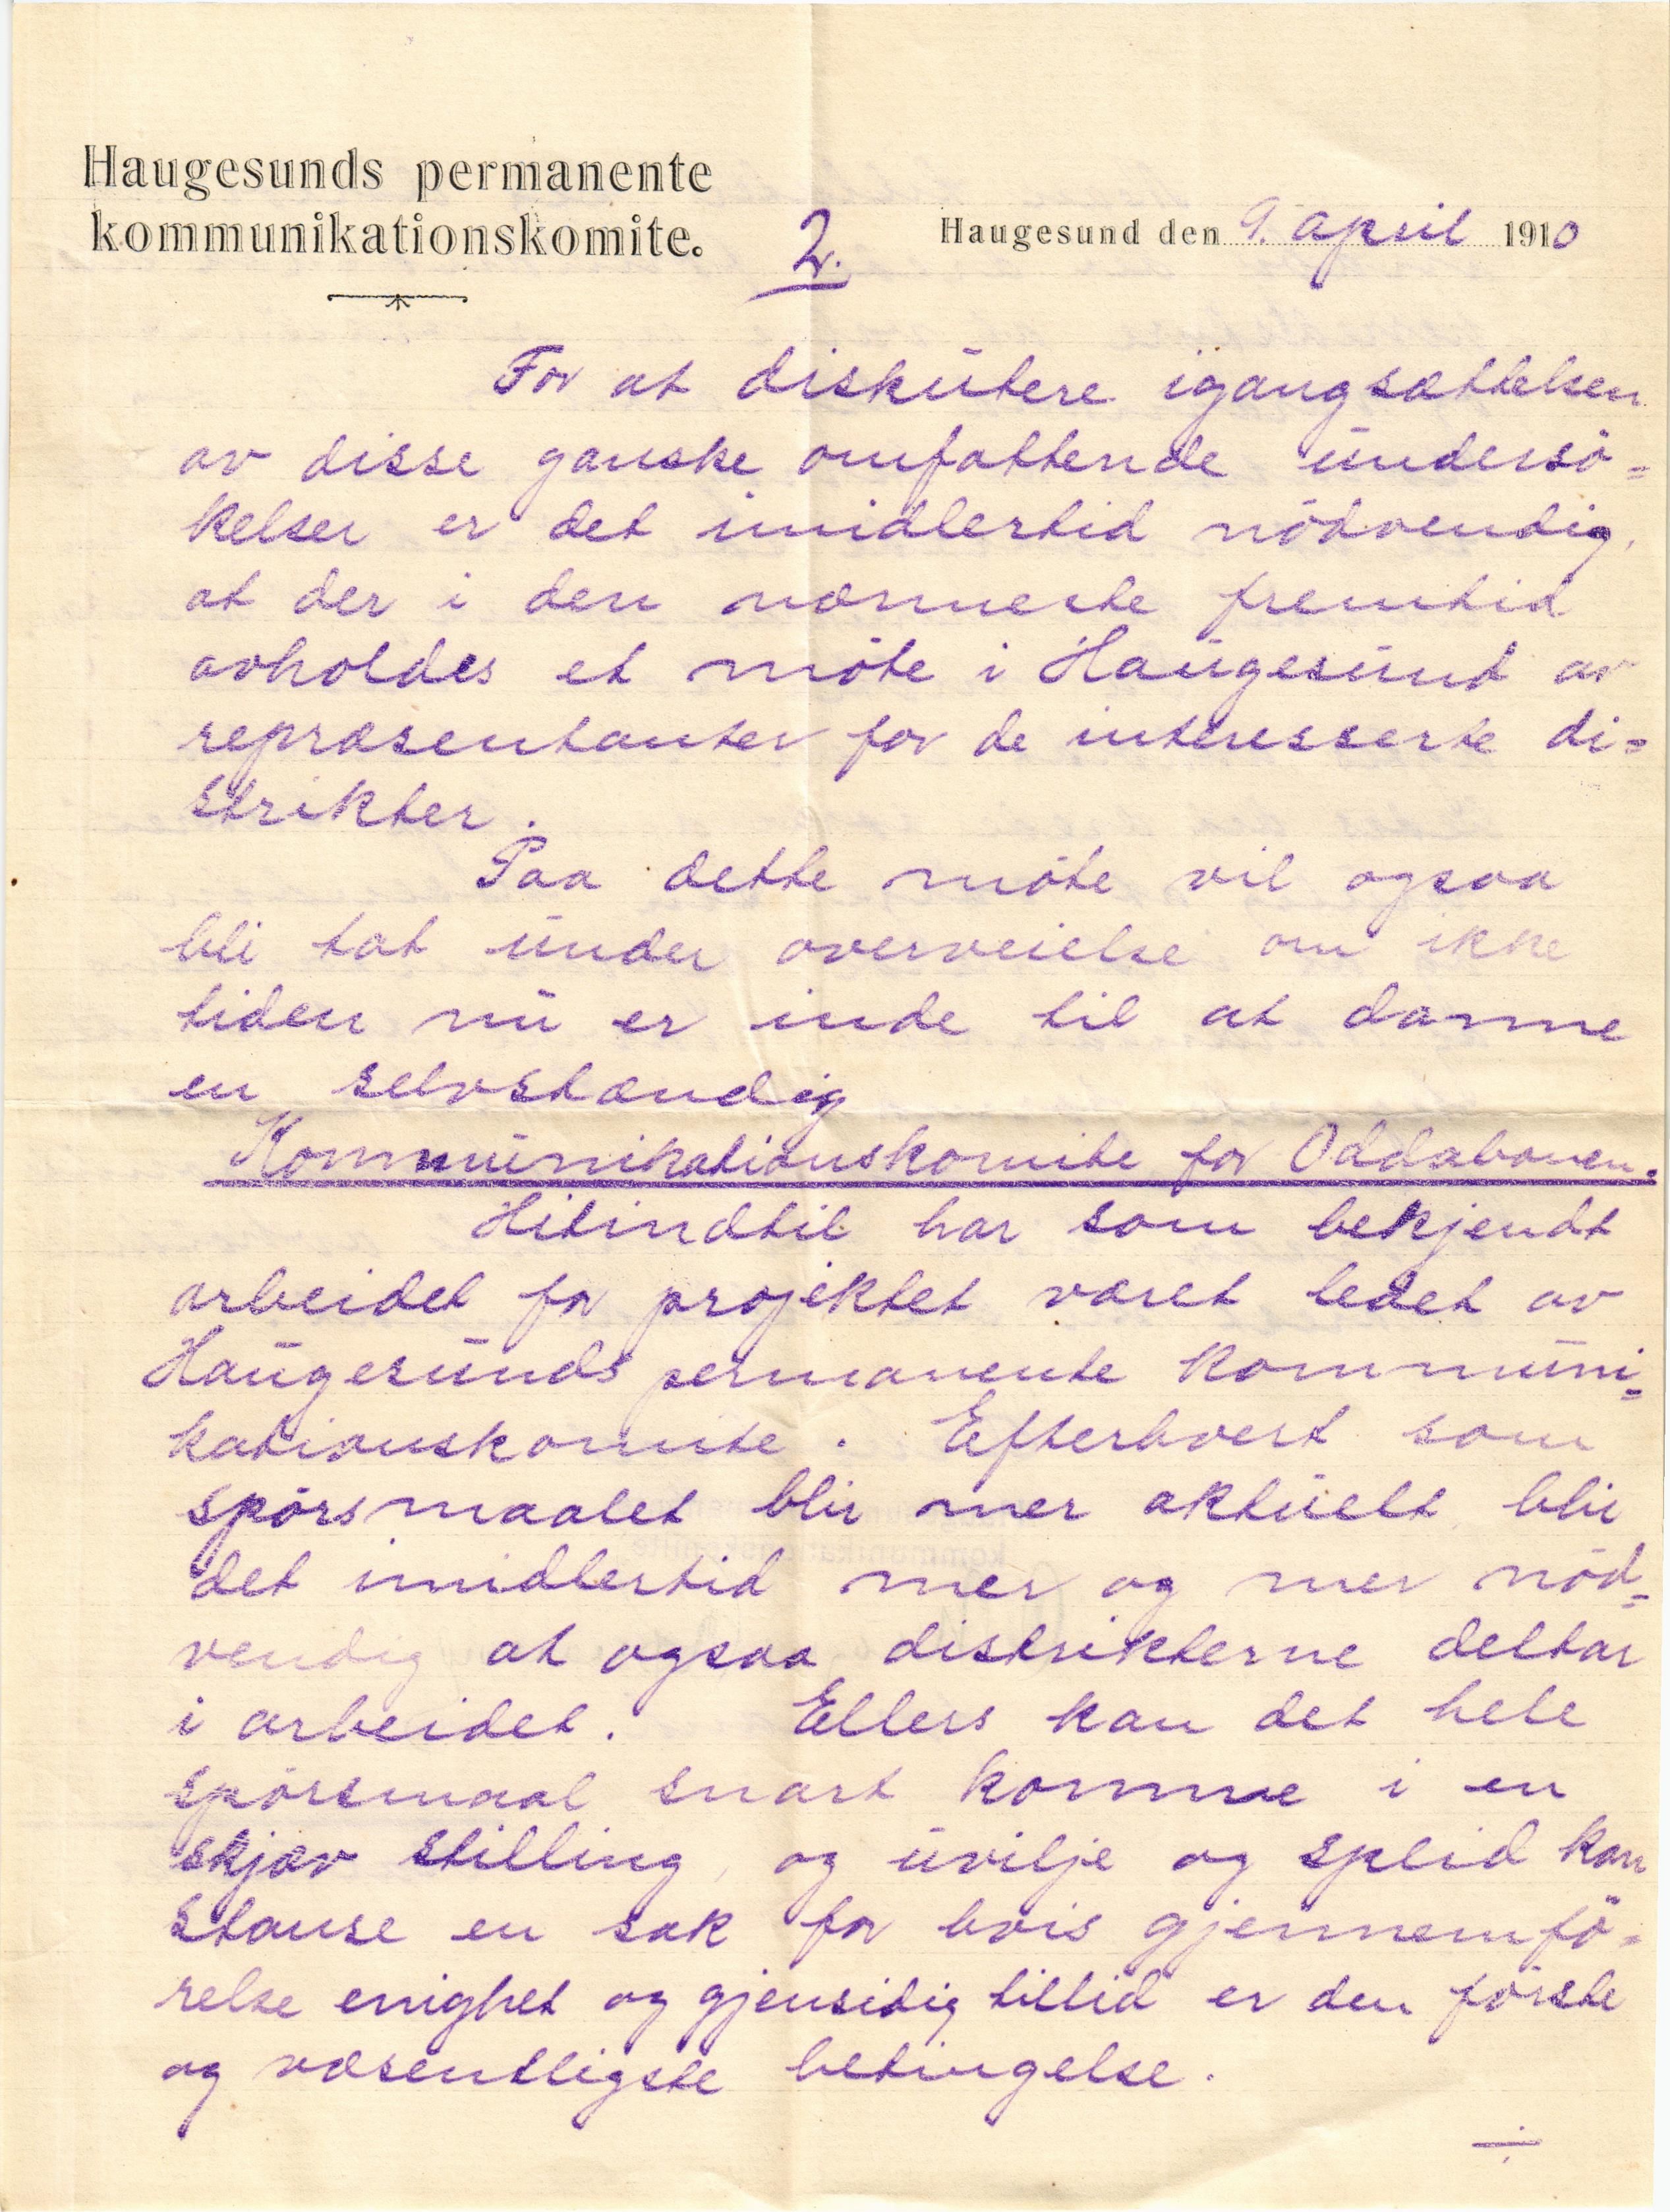 Haugesunds permanente
kommunikationskomite.
2.
Haugesund den 9. april 1910
For at diskutere igangsættelsen
av disse ganske omfattende undersö=
kelser er det imidlertid nödvendig,
at der i den nærmeste fremtid
avholdes et möte i Haugesund av
repræsentanter for de interesserte di=
strikter.
Paa dette möte vil ogsaa
bli tat under overveielse om ikke
tiden nu er inde til at danne
en selvstændig
Kommunikationskomite for Oddabanen.
Hitindtil har som bekjendt
arbeidet for projektet været ledet av
Haugesunds permanente kommuni=
kationskomite. Efterhvert som
spörsmaalet blir mer aktuelt blir
det imidlertid mer og mer nöd=
vendig at ogsaa distrikterne deltar
i arbeidet. Ellers kan det hele
spörsmaal snart komme i en
skjæv stilling, og uvilje og splid kan
stanse en sak for hvis gjennemfö=
relse enighet og gjensidig tillid er den förste
og væsentligste betingelse.
÷